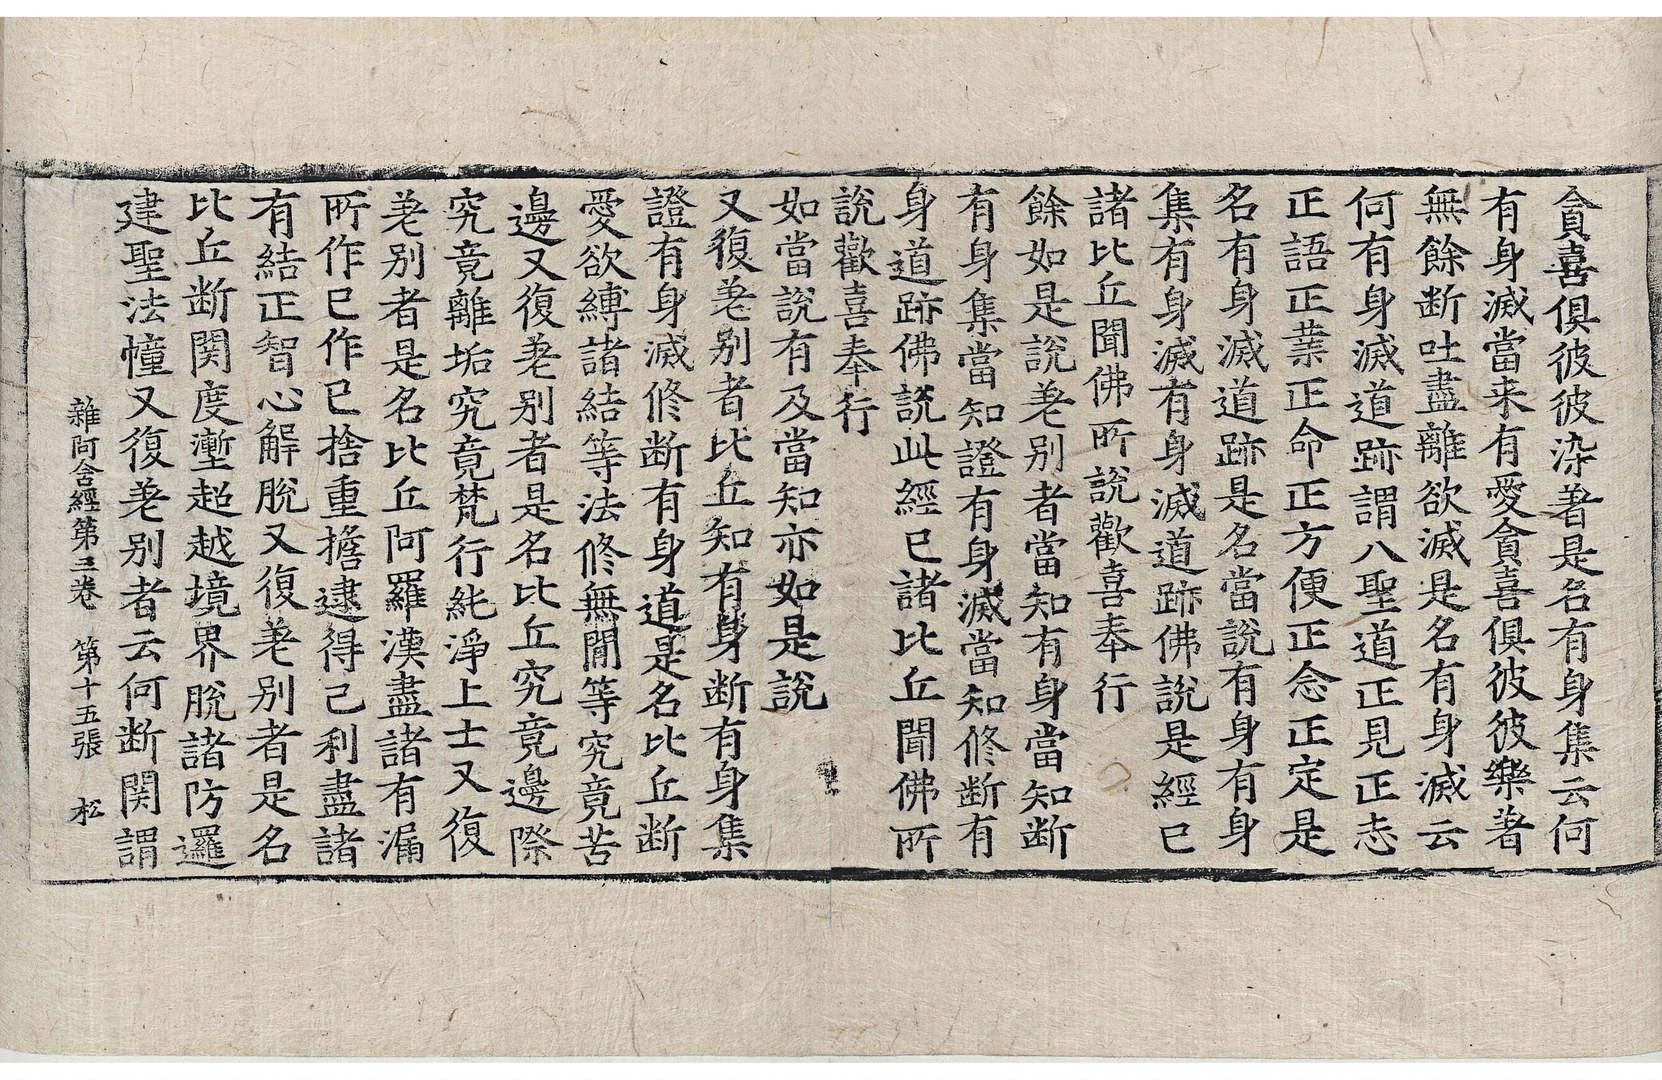 貪喜俱彼彼染著是名有身集云何
有身滅當来有愛貪喜俱彼彼樂著
無餘断吐盡離欲滅是名有身滅云
何有身滅道跡謂八聖道正見正志
正語正業正命正方便正念正定是
名有身滅道跡是名當說有身有身
集有身滅有身滅道跡佛說是經已
諸比丘聞佛所說歡喜奉行
餘如是說差别者當知有身當知断
有身集當知證有身滅當知修断有
身道跡佛說此經已諸比丘聞佛所
說歡喜奉行
如當說有及當知亦如是說
又復差别者比丘知有身断有身集
證有身滅修断有身道是名比丘断
愛欲縛諸結等法修無間等究竟苦
邊又復差别者是名比丘究竟邊際
究竟離垢究竟梵行純淨上士又復
差别者是名比丘阿羅漢盡諸有漏
所作已作已捨重擔逮得己利盡諸
有結正智心解脫又復差别者是名
比丘断関度塹超越境界脫諸防邏
建聖法幢又復差别者云何断関謂
雜阿含經第三卷 第十五張 松